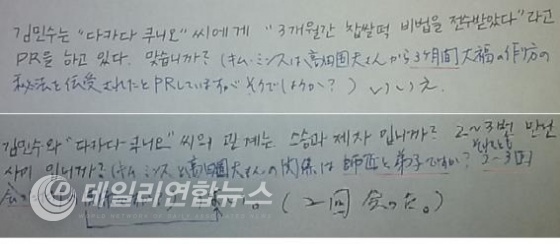 김민수는 "다카다 쿠니오" 씨에게 "3개월간 찹쌀떡 비법을 전수받았다" 라고
PR을 하고 있다. 맞습니까? (キム・ミンスは高田國夫さんから3ヶ月間大福の作り方の
秘法を伝受されたとPRしていますが そうでしょうか?) いいえ
김민수와 "다카다 쿠니오" 씨의 관계는 스승과 제자 입니까? 2~3번 만난
사이 입니까? (キム・ミンスと高田國夫さんの関係は師匠と弟子ですか? 2~3回
会った
데일리연합뉴스
(2回会った。)